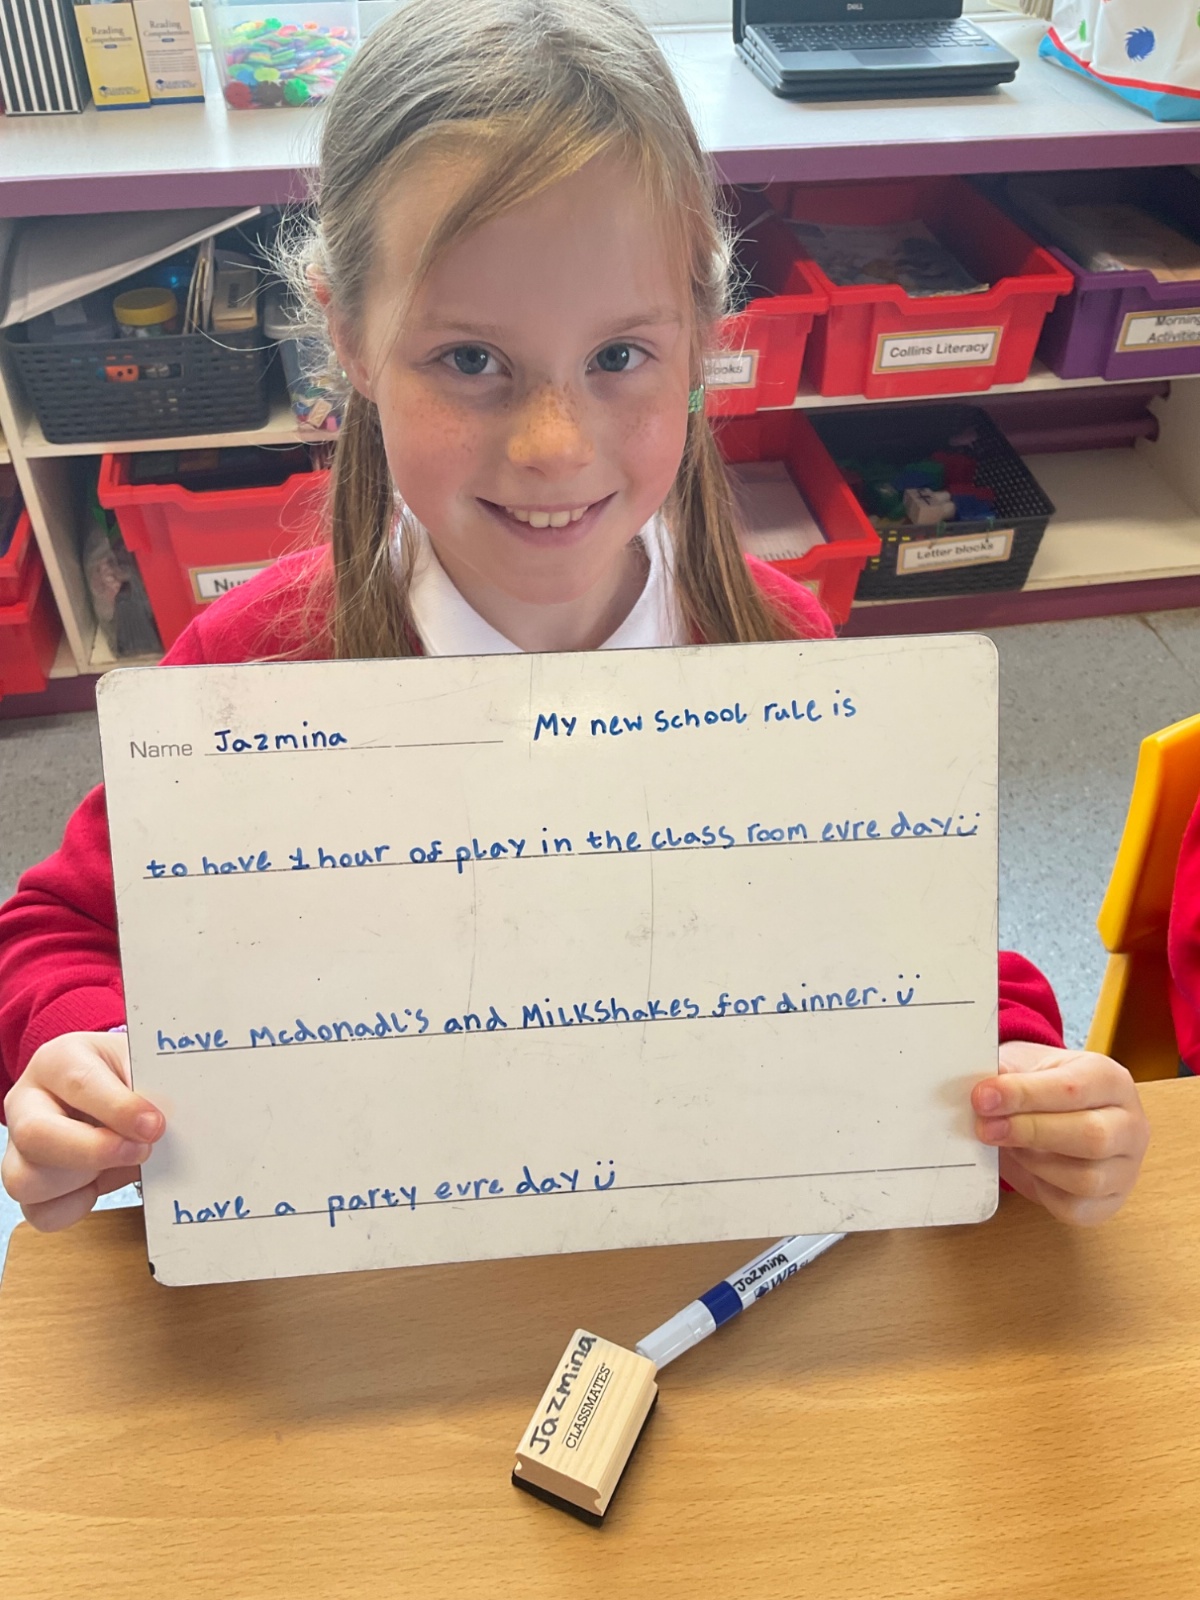 Reading
Comprehension
Reading
Comprehension
DELL
Collins Literacy
Morning
Activities
Books
Letter blocks
Name Jazmina My new school rule is
to have 1 hour of play in the class room evre day
have Mcdonadl's and Milkshakes for dinner.
have a party evre day
Jazmina
Jazmina
CLASSMATES